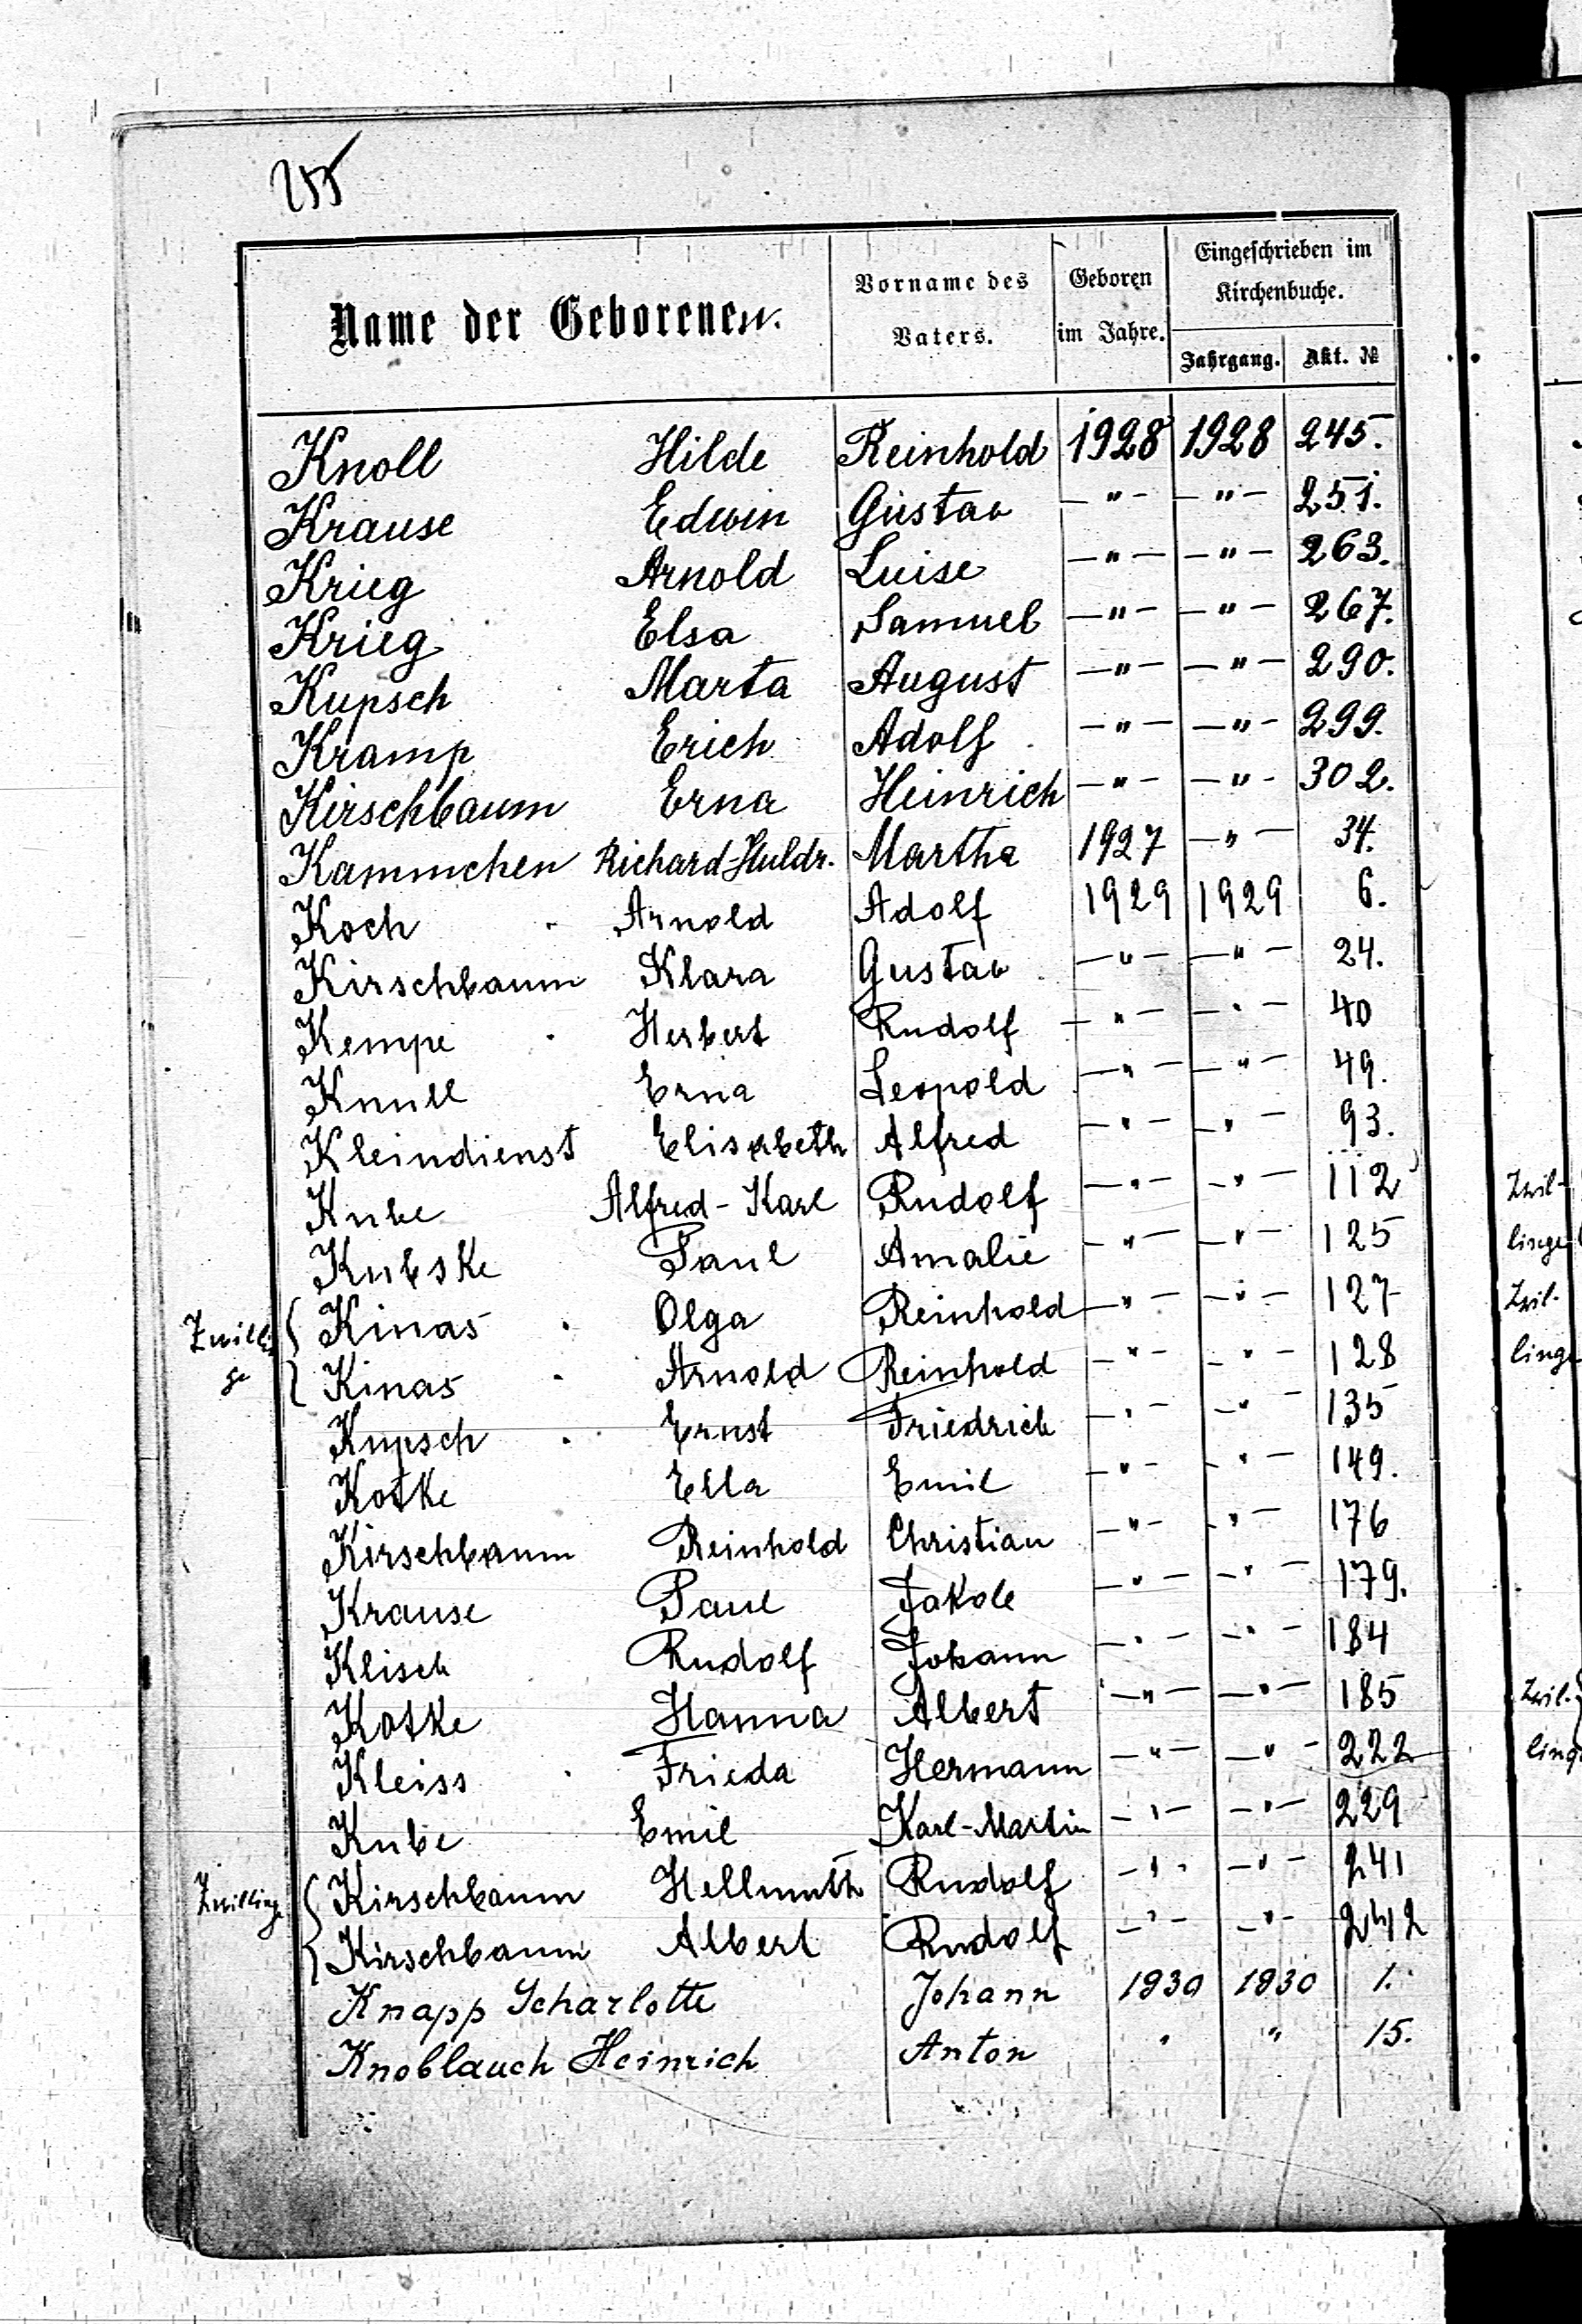 255
Name der Geborenen.
Vorname des Vaters.
Geboren im Jahre.
Eingeschrieben im Kirchenbuche.
Jahrgang. Akt. №
Knoll Hilde Reinhold 1928 1928 245.
Krause Edwin Gustav —"— —"— 251.
Krieg Arnold Luise —"— —"— 263.
Krieg Elsa Samuel —"— —"— 267.
Kupsch Marta August —"— —"— 290.
Kramp Erich Adolf —"— —"— 299.
Kirschbaum Erna Heinrich —"— —"— 302.
Kammchen Richard-Huldr. Martha 1927 —"— 34.
Koch Arnold Adolf 1929 1929 6.
Kirschbaum Klara Gustav —"— —"— 24.
Kempe Herbert Rudolf —"— —"— 40
Knull Erna Leopold —"— —"— 49.
Kleindienst Elisabeth Alfred —"— —"— 93.
Kube Alfred-Karl Rudolf —"— —"— 112
Kubske Paul Amalie —"— —"— 125
Kinas Olga Reinhold —"— —"— 127
Kinas Arnold Reinhold —"— —"— 128
Kupsch Ernst Friedrich —"— —"— 135
Kotke Ella Emil —"— —"— 149.
Kirschbaum Reinhold Christian —"— —"— 176
Krause Paul Jakob —"— —"— 179.
Klisch Rudolf Johann —"— —"— 184
Kotke Hanna Albert —"— —"— 185
Kleiss Frieda Hermann —"— —"— 222
Kube Emil Karl-Martin —"— —"— 229
Zwillinge Kirschbaum Hellmuth Rudolf —"— —"— 241
Kirschbaum Albert Rudolf —"— —"— 242
Knapp Scharlotte Johann 1930 1930 1.
Knoblauch Heinrich Anton " " 15.
Zwil-
linge
Zwil-
linge
Zwil-